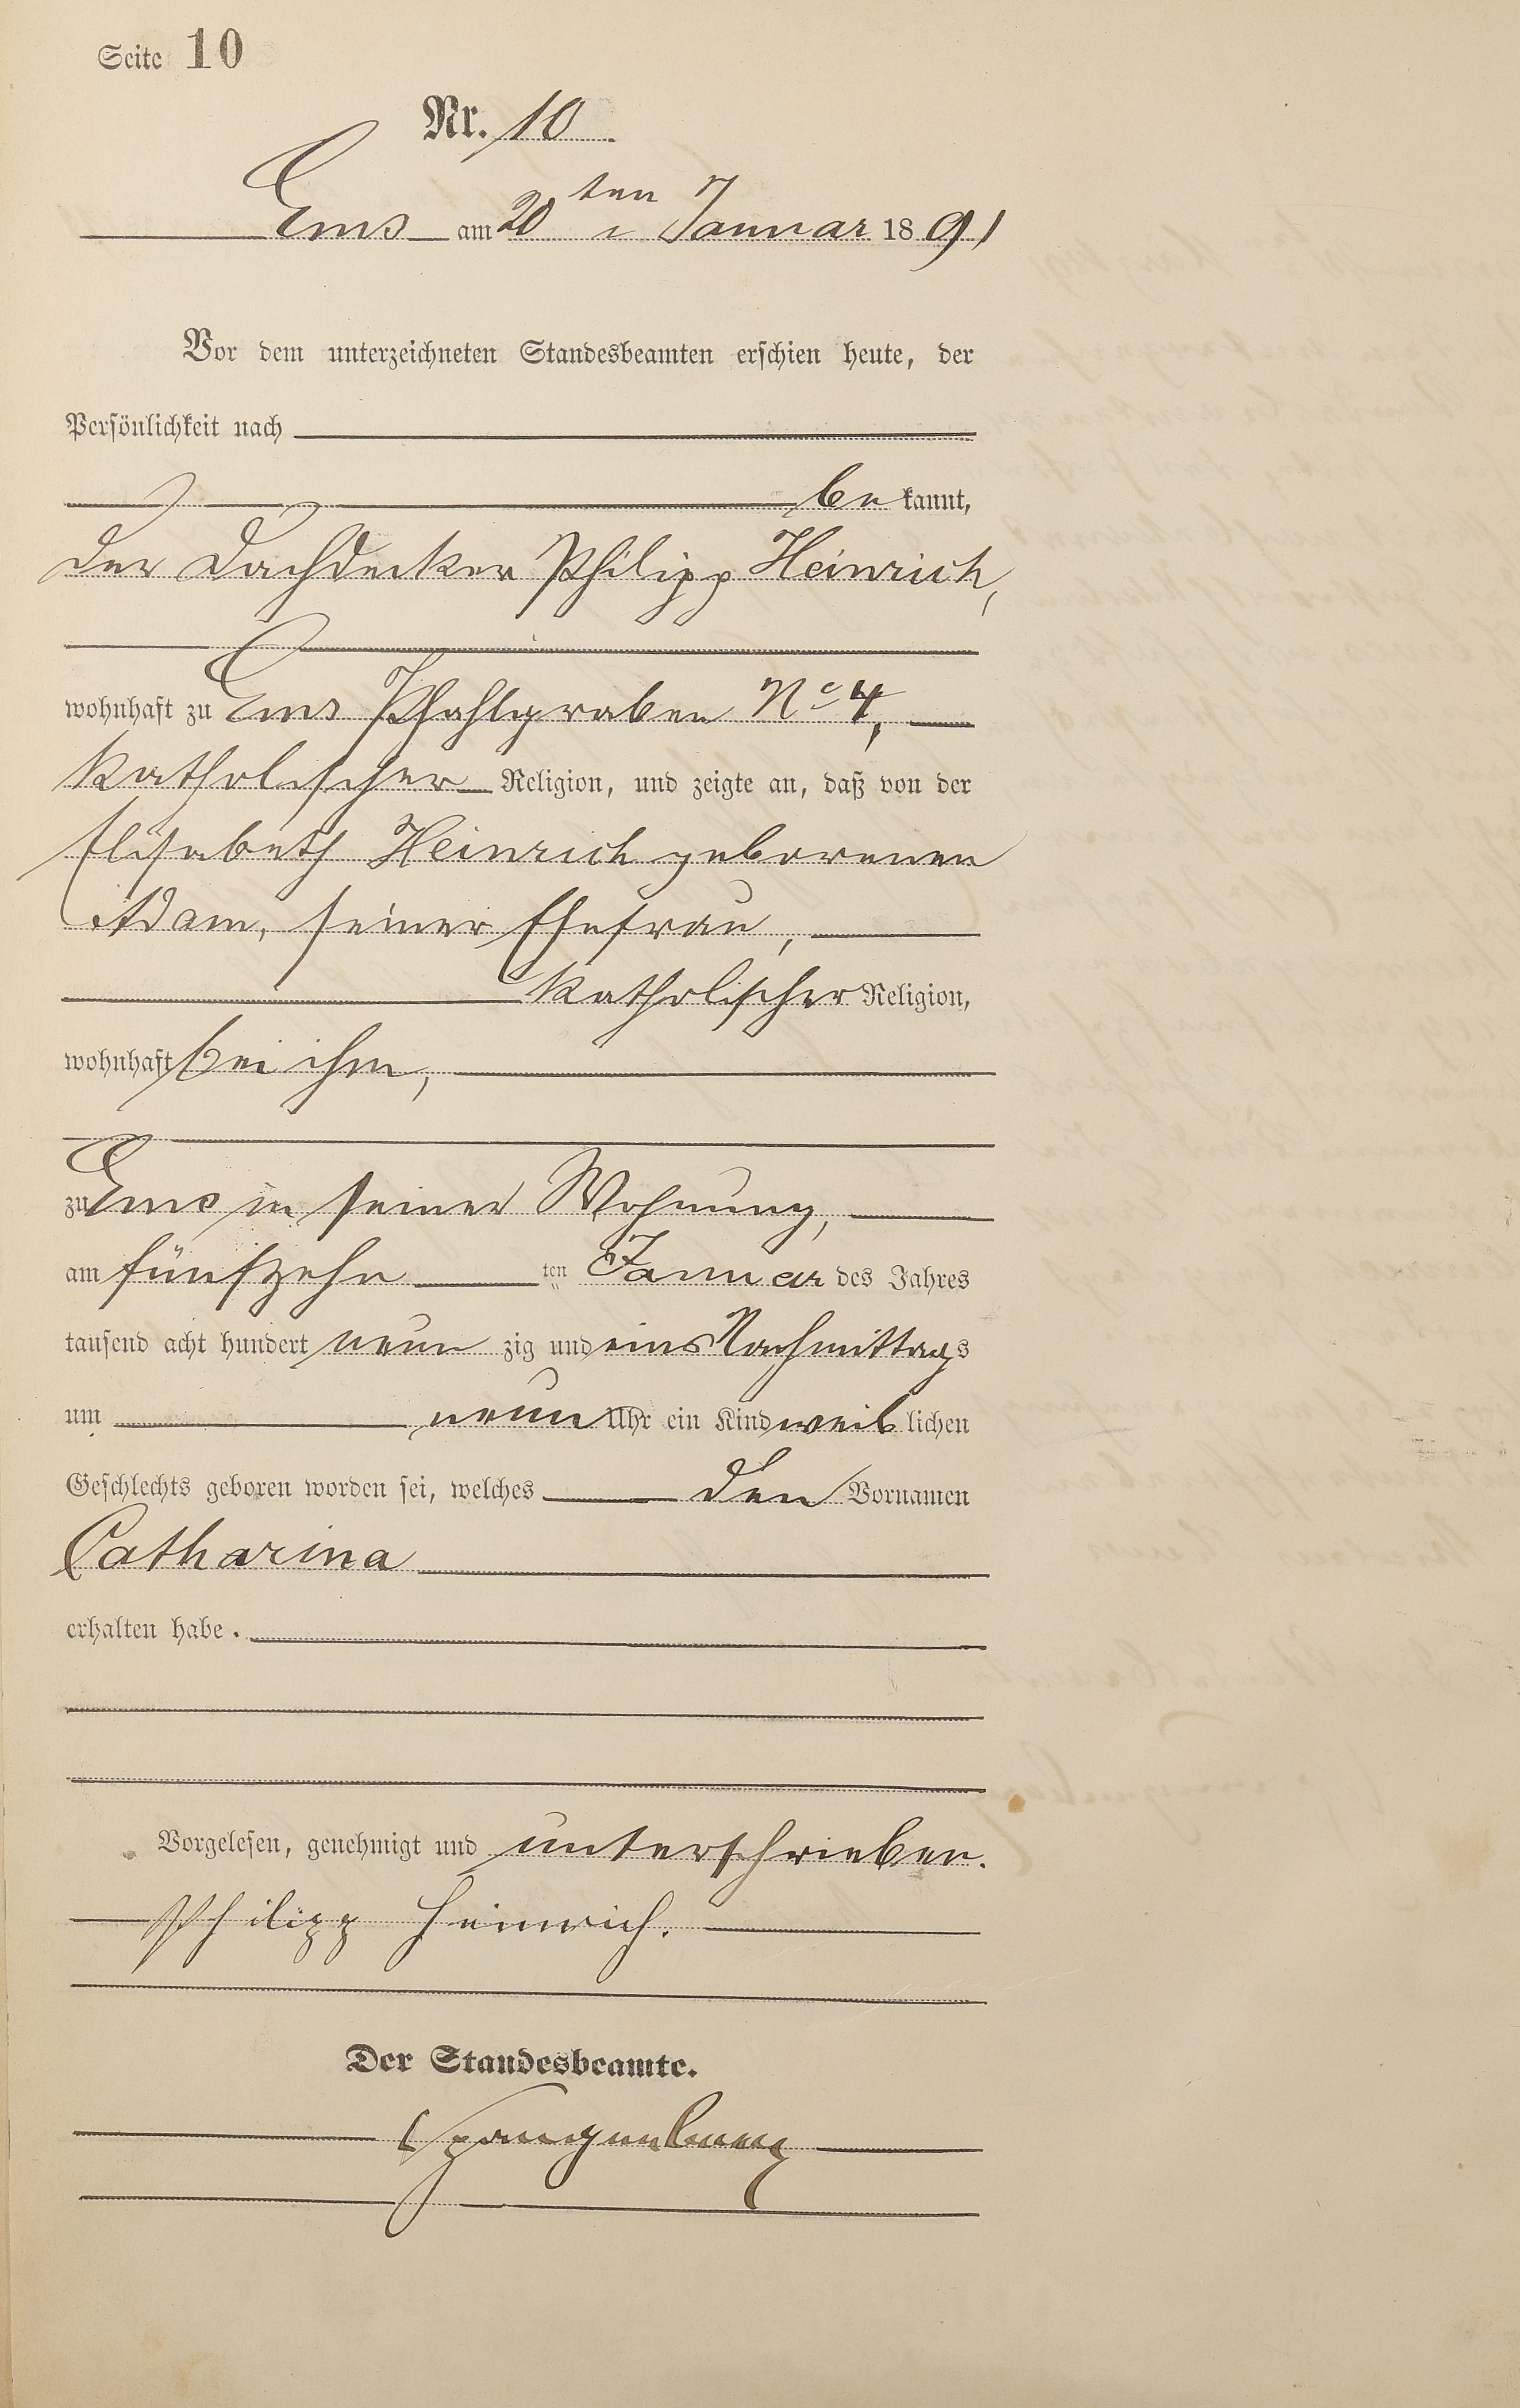 Seite 10
Nr. 10
Ems am 20ten Januar 1891
Vor dem unterzeichneten Standesbeamten erschien heute, der
Persönlichkeit nach
bekannt,
der Dachdecker Philipp Heinrich,
wohnhaft zu Ems Pfahlgraben No 4,
katholischer Religion, und zeigte an, daß von der
Elisabeth Heinrich geborenen
Adam, seiner Ehefrau,
katholischer Religion,
wohnhaft bei ihm,
zu Ems in seiner Wohnung,
am fünfzehn ten Januar des Jahres
tausend acht hundert neun zig und eins Nachmittags
um neun Uhr ein Kind weiblichen
Geschlechts geboren worden sei, welches den Vornamen
Catharina
erhalten habe.
Vorgelesen, genehmigt und unterschrieben.
Philipp Heinrich.
Der Standesbeamte.
Spangenberg